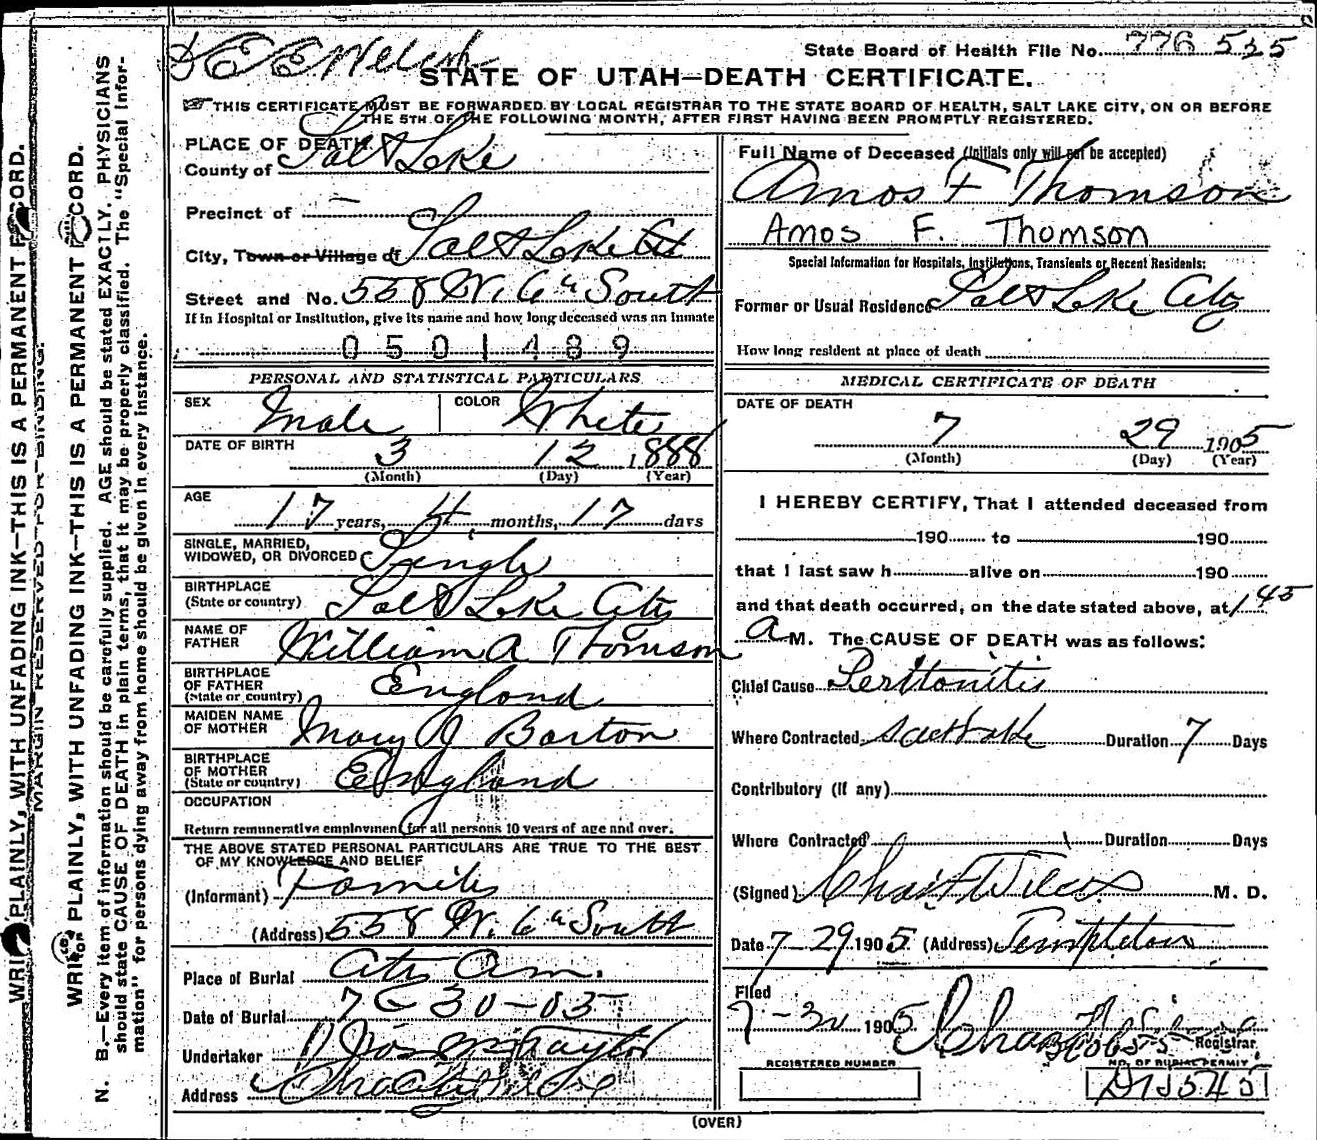 State Board of Health File No. 776 525
E E Welsh
STATE OF UTAH—DEATH CERTIFICATE.
THIS CERTIFICATE MUST BE FORWARDED BY LOCAL REGISTRAR TO THE STATE BOARD OF HEALTH, SALT LAKE CITY, ON OR BEFORE
THE 5TH OF THE FOLLOWING MONTH, AFTER FIRST HAVING BEEN PROMPTLY REGISTERED.
PLACE OF DEATH
County of Salt Lake
Precinct of —
City, Town or Village of Salt Lake
Street and No. 558 W. 6th South
If in Hospital or Institution, give its name and how long deceased was an Inmate
0501489
PERSONAL AND STATISTICAL PARTICULARS
SEX Male COLOR White
DATE OF BIRTH 3 12 1888
(Month) (Day) (Year)
AGE
17 years, 4 months, 17 days
SINGLE, MARRIED,
WIDOWED, OR DIVORCED Single
BIRTHPLACE
(State or country) Salt Lake City
NAME OF
FATHER William A Thomson
BIRTHPLACE
OF FATHER
(State or country) England
MAIDEN NAME
OF MOTHER Mary J Barton
BIRTHPLACE
OF MOTHER
(State or country) England
OCCUPATION
Return remunerative employment for all persons 10 years of age and over.
THE ABOVE STATED PERSONAL PARTICULARS ARE TRUE TO THE BEST
OF MY KNOWLEDGE AND BELIEF
(Informant) Family
(Address) 558 W. 6th South
Place of Burial City Cem.
Date of Burial 7-30-05
Undertaker Taylor
Address
Full Name of Deceased (Initials only will not be accepted)
Amos F Thomson
Amos F. Thomson
Special Information for Hospitals, Institutions, Transients or Recent Residents:
Former or Usual Residence Salt Lake City
How long resident at place of death
MEDICAL CERTIFICATE OF DEATH
DATE OF DEATH
7 29 1905
(Month) (Day) (Year)
I HEREBY CERTIFY, That I attended deceased from
190 to 190
that I last saw h alive on 190
and that death occurred, on the date stated above, at 1 45
a M. The CAUSE OF DEATH was as follows:
Chief Cause Peritonitis
Where Contracted Salt Lake Duration 7 Days
Contributory (if any)
Where Contracted Duration Days
(Signed) Chas M. D.
Date 7-29 1905 (Address) Templeton
Filed
7-30 1905 Chas
Registrar.
REGISTERED NUMBER
NO. OF BURIAL PERMIT
(OVER)
WRITE PLAINLY, WITH UNFADING INK—THIS IS A PERMANENT RECORD.
MARGIN RESERVED FOR BINDING.
WRITE PLAINLY, WITH UNFADING INK—THIS IS A PERMANENT RECORD.
N. B.—Every item of information should be carefully supplied. AGE should be stated EXACTLY. PHYSICIANS
should state CAUSE OF DEATH in plain terms, that it may be properly classified. The "Special Infor-
mation" for persons dying away from home should be given in every instance.